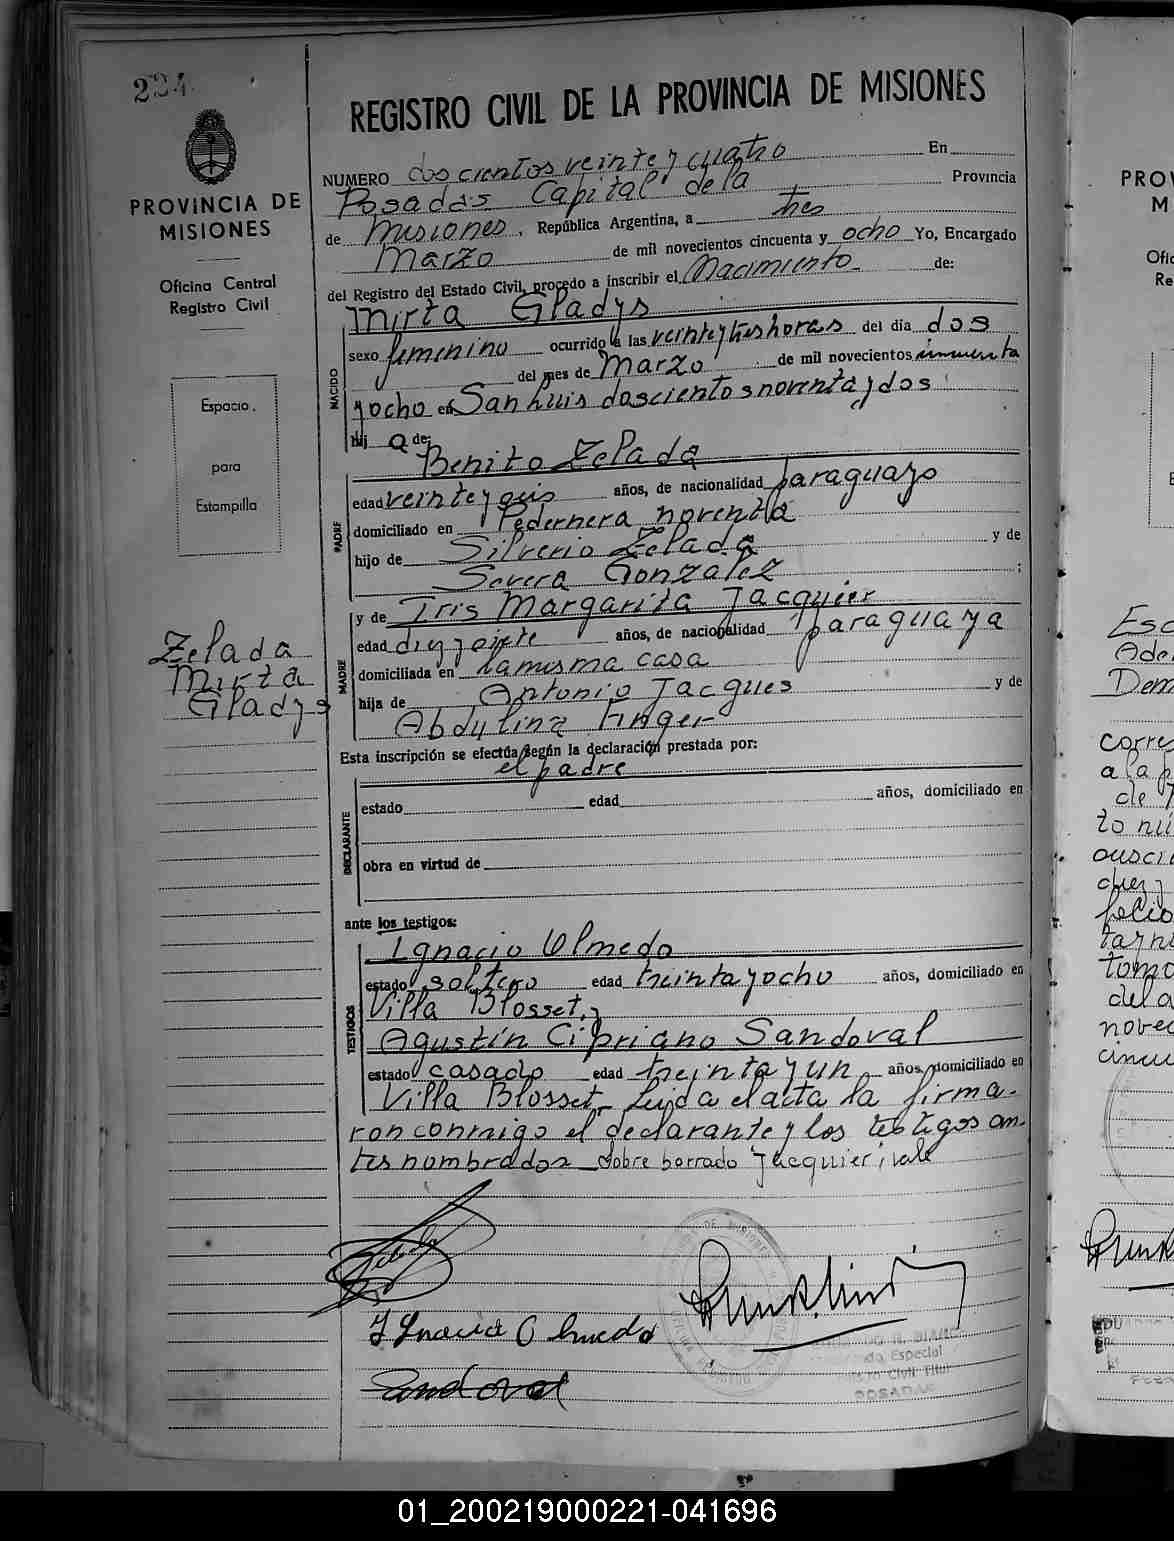 224.
PROVINCIA DE
MISIONES
Oficina Central
Registro Civil
Espacio
para
Estampilla
Zelada
Mirta
Gladys
REGISTRO CIVIL DE LA PROVINCIA DE MISIONES
NUMERO doscientos veinte y cuatro En
Posadas Capital de la Provincia
de Misiones, República Argentina, a tres
Marzo de mil novecientos cincuenta y ocho Yo, Encargado
del Registro del Estado Civil, procedo a inscribir el Nacimiento de:
Mirta Gladys
NACIDO
sexo femenino ocurrido a las veinte y tres horas del día dos
del mes de Marzo de mil novecientos cincuenta
y ocho en San Luis doscientos noventa y dos
hij a de:
Benito Zelada
PADRE
edad veinte y seis años, de nacionalidad paraguayo
domiciliado en Pedernera noventa
hijo de Silverio Zelada y de
Severa Gonzalez ;
y de Iris Margarita Jacquier
MADRE
edad diez y siete años, de nacionalidad paraguaya
domiciliada en la misma casa
hija de Antonio Jacques y de
Abdulina Finger
Esta inscripción se efectúa según la declaración prestada por:
el padre
DECLARANTE
estado edad años, domiciliado en
obra en virtud de
ante los testigos:
Ignacio Olmedo
TESTIGOS
estado soltero edad treinta y ocho años, domiciliado en
Villa Blosset, y
Agustín Cipriano Sandoval
estado casado edad treinta y un años, domiciliado en
Villa Blosset. Leida el acta la firma-
ron conmigo el declarante y los testigos an-
tes nombrados sobre borrado Jacquier; vale
Zelada
Ignacio Olmedo
Sandoval
Especial
Civil Titular
POSADAS
PROV
M
Ofic
Re
Esc
Ade
Dem
corres
a la p
de
to nú
cinco
01_200219000221-041696